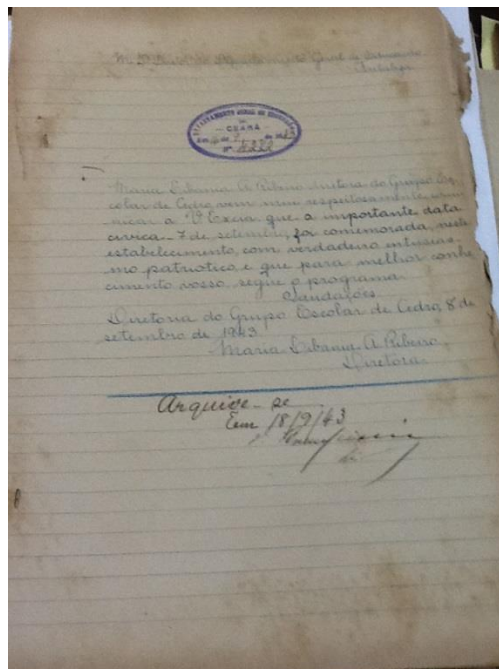 Geral de
DEPARTAMENTO GERAL DE EDUCAÇÃO
DO
CEARÁ
Em de de
Nº 4222
Maria Libania A. Ribeiro diretora do Grupo Es-
colar de Cedro, vem mui respeitosamente comu-
nicar a Vª Excia. que a importante data
civica - 7 de setembro, foi comemorada, neste
estabelecimento, com verdadeiro entusias-
mo patriotico, e que para melhor conhe-
cimento vosso, segue o programa.
Saudações
Diretoria do Grupo Escolar de Cedro, 8 de
setembro de 1943
Maria Libania A. Ribeiro,
Diretora.
Arquive-se
Em 18/9/43